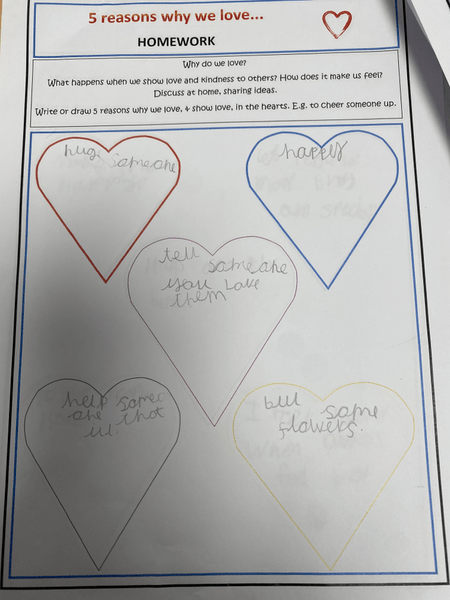 5 reasons why we love...
HOMEWORK
Why do we love?
What happens when we show love and kindness to others? How does it make us feel?
Discuss at home, sharing ideas.
Write or draw 5 reasons why we love, & show love, in the hearts. E.g. to Cheer someone up.
hug someone
happy
tell
someone
you Love
them
help some
one that
ill.
some
flowers.